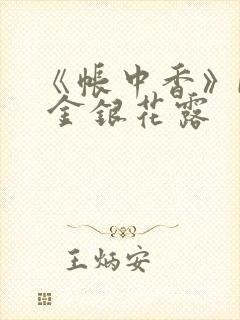 《帐中香》
金银花露
王炳安